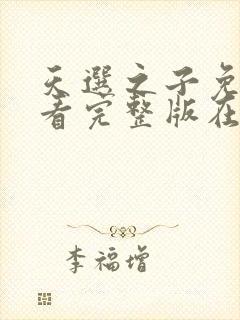 天选之子免
看完整版在
李福增